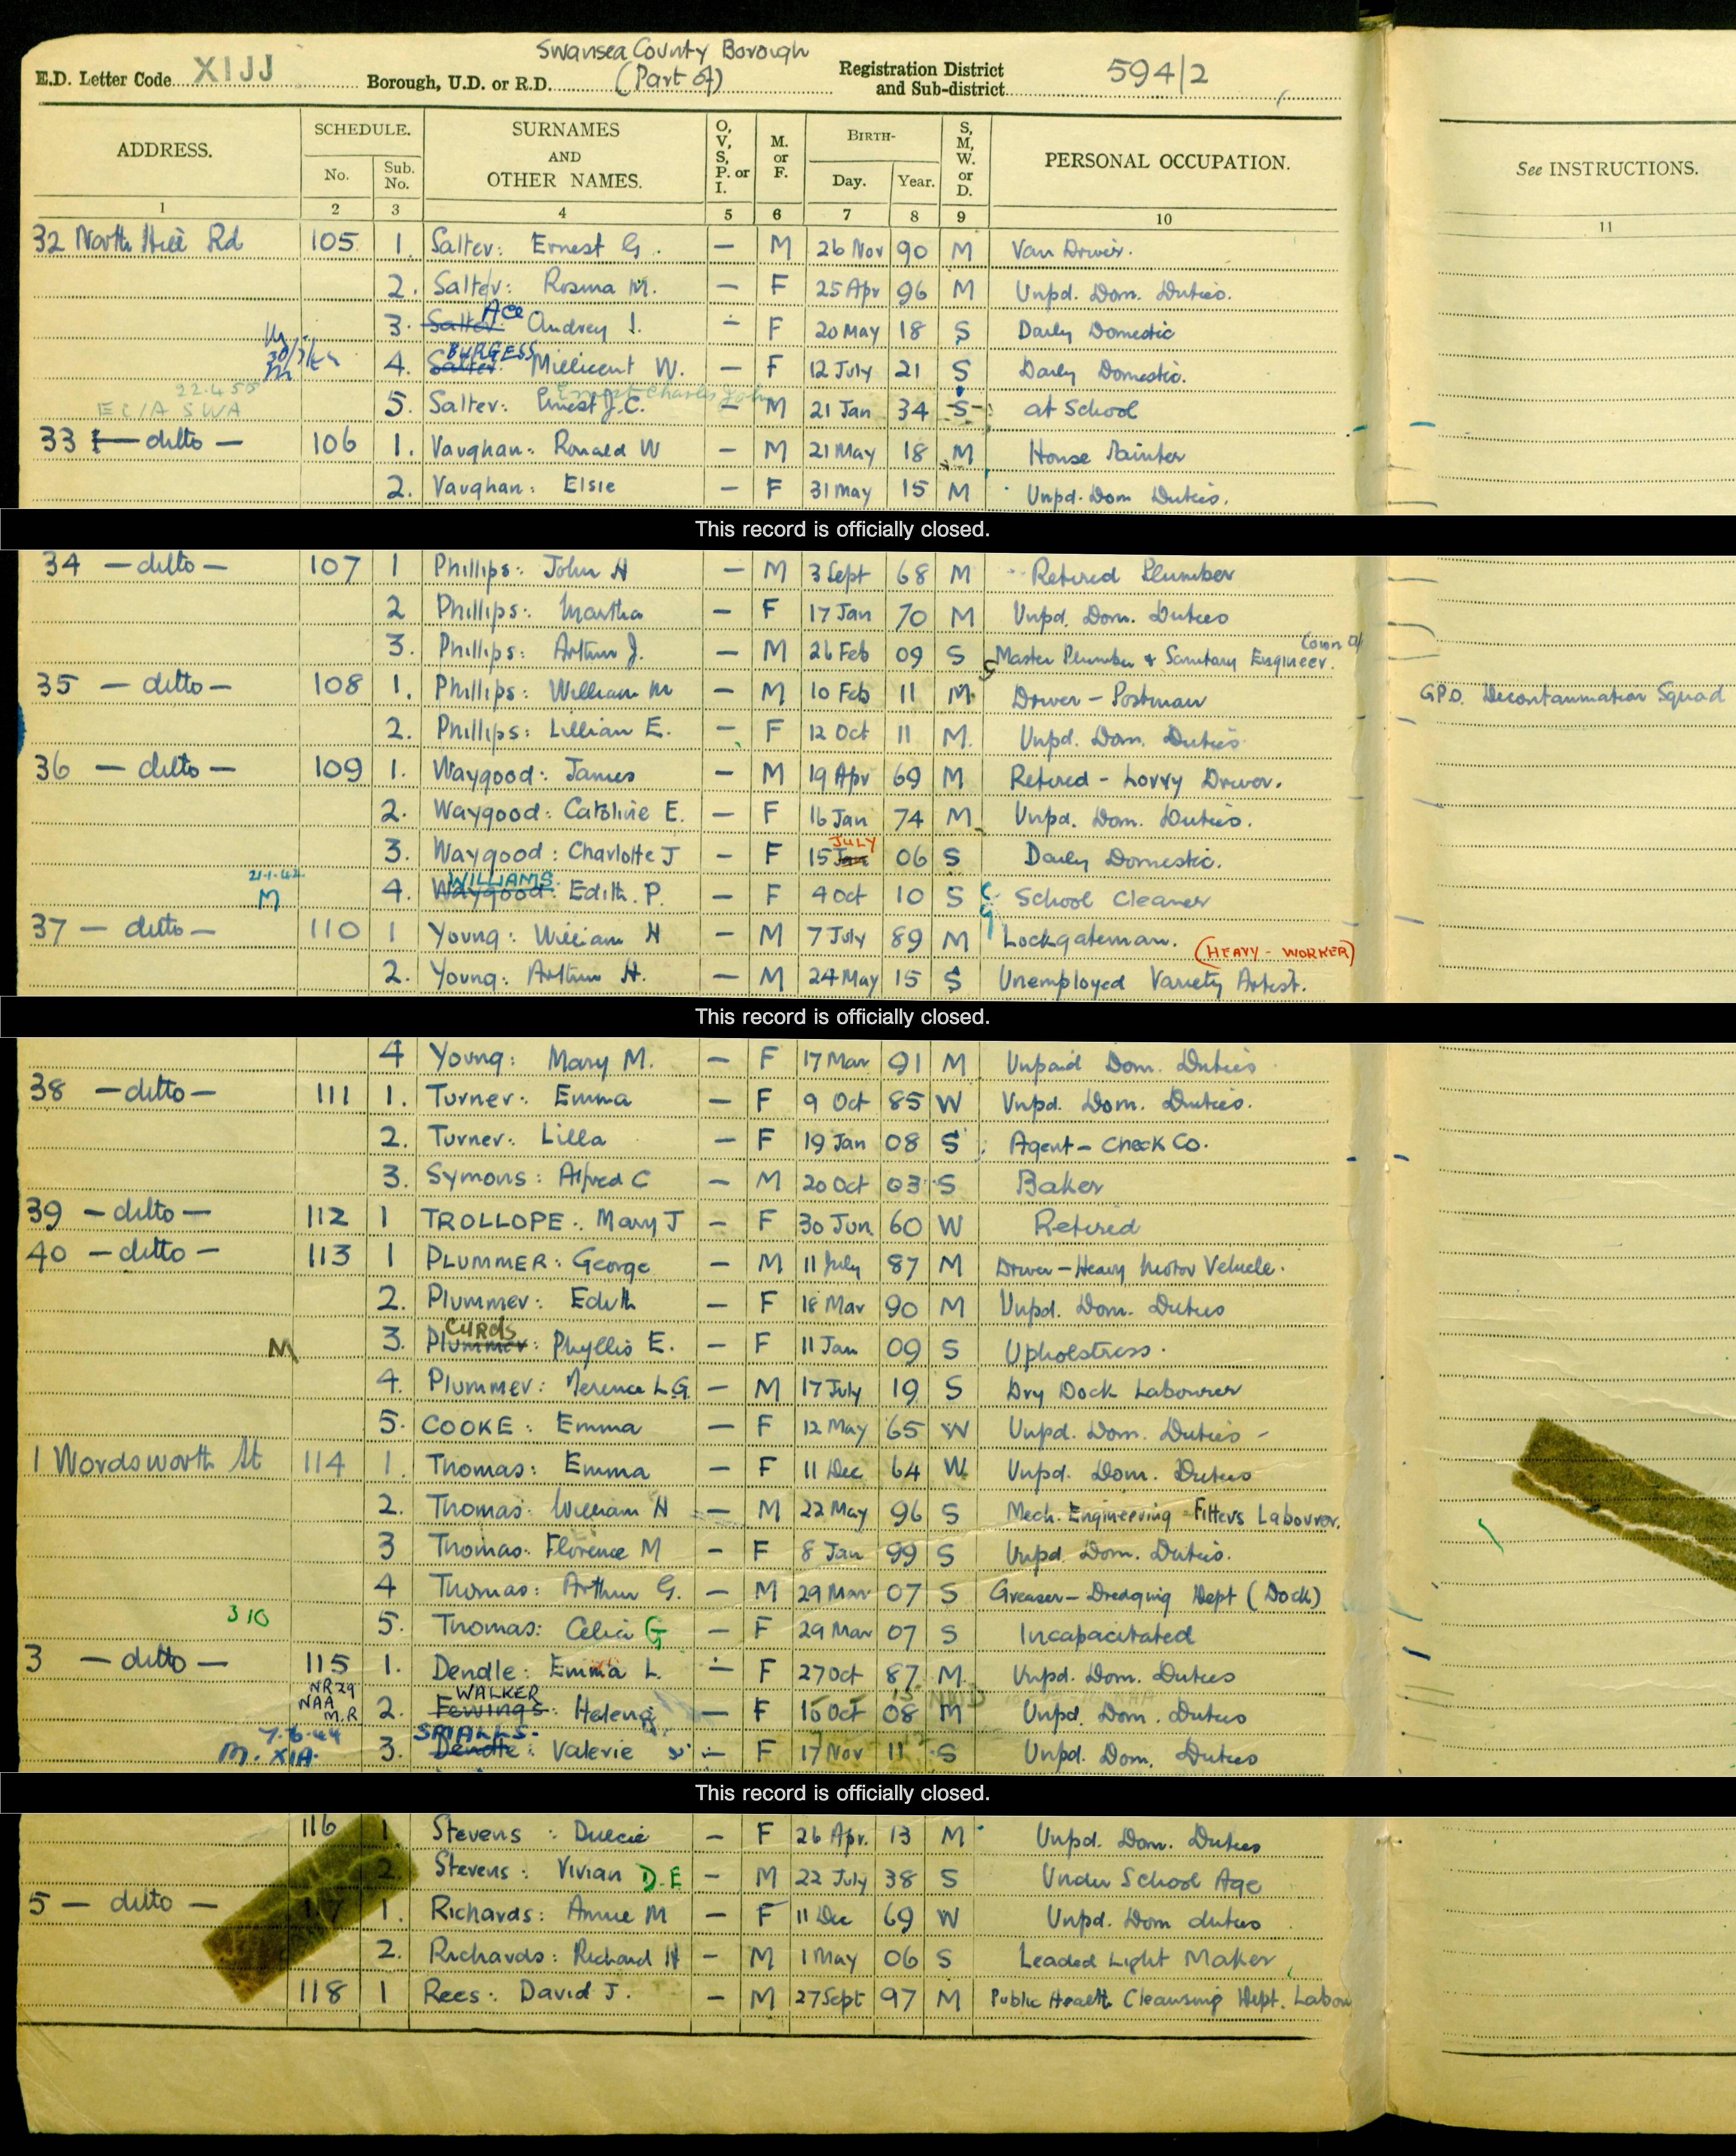 Swansea County Borough
E.D. Letter Code XIJJ Borough, U.D. or R.D. (Part of) Registration District and Sub-district 594/2
ADDRESS. SCHEDULE. No. Sub. No. SURNAMES AND OTHER NAMES. O, V, S, P. or I. M. or F. BIRTH- Day. Year. S, M, W. or D. PERSONAL OCCUPATION. See INSTRUCTIONS.
1 2 3 4 5 6 7 8 9 10 11
32 North Hill Rd 105 1. Salter: Ernest G. — M 26 Nov 90 M Van Driver.
2. Salter: Rosina M. — F 25 Apr 96 M Unpd. Dom. Duties.
Ace
3. Salter: Audrey I. — F 20 May 18 S Daily Domestic
BURGESS
4. Salter: Millicent W. — F 12 July 21 S Daily Domestic.
22.4.55 Ernest Charles John
ECIA SWA 5. Salter: Ernest J.C. — M 21 Jan 34 S at School
33 — ditto — 106 1. Vaughan: Ronald W — M 21 May 18 M House Painter
2. Vaughan: Elsie — F 31 May 15 M Unpd. Dom Duties.
This record is officially closed.
34 — ditto — 107 1 Phillips: John H — M 3 Sept 68 M Retired Plumber
2 Phillips: Martha — F 17 Jan 70 M Unpd. Dom. Duties
3. Phillips: Arthur J. — M 26 Feb 09 S Master Plumber & Sanitary Engineer.
35 — ditto — 108 1. Phillips: William M — M 10 Feb 11 M Driver – Postman G.P.O. Decontammation Squad
2. Phillips: Lillian E. — F 12 Oct 11 M. Unpd. Dom. Duties
36 — ditto — 109 1. Waygood: James — M 19 Apr 69 M Retired – Lorry Driver.
2. Waygood: Caroline E. — F 16 Jan 74 M Unpd. Dom. Duties.
JULY
3. Waygood: Charlotte J — F 15 Jan 06 S Daily Domestic.
21.1.42 WILLIAMS.
M 4. Waygood: Edith. P. — F 4 Oct 10 S School Cleaner
37 — ditto — 110 1 Young: William H — M 7 July 89 M Lockgateman. (HEAVY - WORKER)
2. Young: Arthur H. — M 24 May 15 S Unemployed Variety Artist.
This record is officially closed.
4 Young: Mary M. — F 17 Mar 91 M Unpaid Dom. Duties
38 — ditto — 111 1. Turner: Emma — F 9 Oct 85 W Unpd. Dom. Duties.
2. Turner: Lilla — F 19 Jan 08 S Agent – Check Co.
3. Symons: Alfred C — M 20 Oct 03 S Baker
39 — ditto — 112 1 TROLLOPE: Mary J — F 30 Jun 60 W Retired
40 — ditto — 113 1 PLUMMER: George — M 11 July 87 M Driver – Heavy Motor Vehicle.
2. Plummer: Edith — F 18 Mar 90 M Unpd. Dom. Duties
CURDS
M 3. Plummer: Phyllis E. — F 11 Jan 09 S Upholstress.
4. Plummer: Terence L.G. — M 17 July 19 S Dry Dock Labourer
5. COOKE: Emma — F 12 May 65 W Unpd. Dom. Duties –
1 Wordsworth St 114 1. Thomas: Emma — F 11 Dec 64 W Unpd. Dom. Duties
2. Thomas: William H — M 22 May 96 S Mech. Engineering Fitters Labourer.
3 Thomas: Florence M — F 8 Jan 99 S Unpd. Dom. Duties.
4 Thomas: Arthur G. — M 29 Mar 07 S Greaser – Dredging Dept (Dock)
310 5. Thomas: Celia G — F 29 Mar 07 S Incapacitated
3 — ditto — 115 1. Dendle: Emma L. — F 27 Oct 87 M. Unpd. Dom. Duties
NR 29 NAA M.R WALKER
2. Fewings: Helena — F 15 Oct 08 M Unpd. Dom. Duties
7.6.44 SMALLS.
M. XIA. 3. Dendle: Valerie — F 17 Nov 11 S Unpd. Dom. Duties
This record is officially closed.
116 1. Stevens: Dulcie — F 26 Apr. 13 M Unpd. Dom. Duties
2. Stevens: Vivian D.E — M 22 July 38 S Under School Age
5 — ditto — 117 1. Richards: Annie M — F 11 Dec 69 W Unpd. Dom duties
2. Richards: Richard H — M 1 May 06 S Leaded Light Maker
118 1 Rees: David J. — M 27 Sept 97 M Public Health Cleansing Dept. Labou